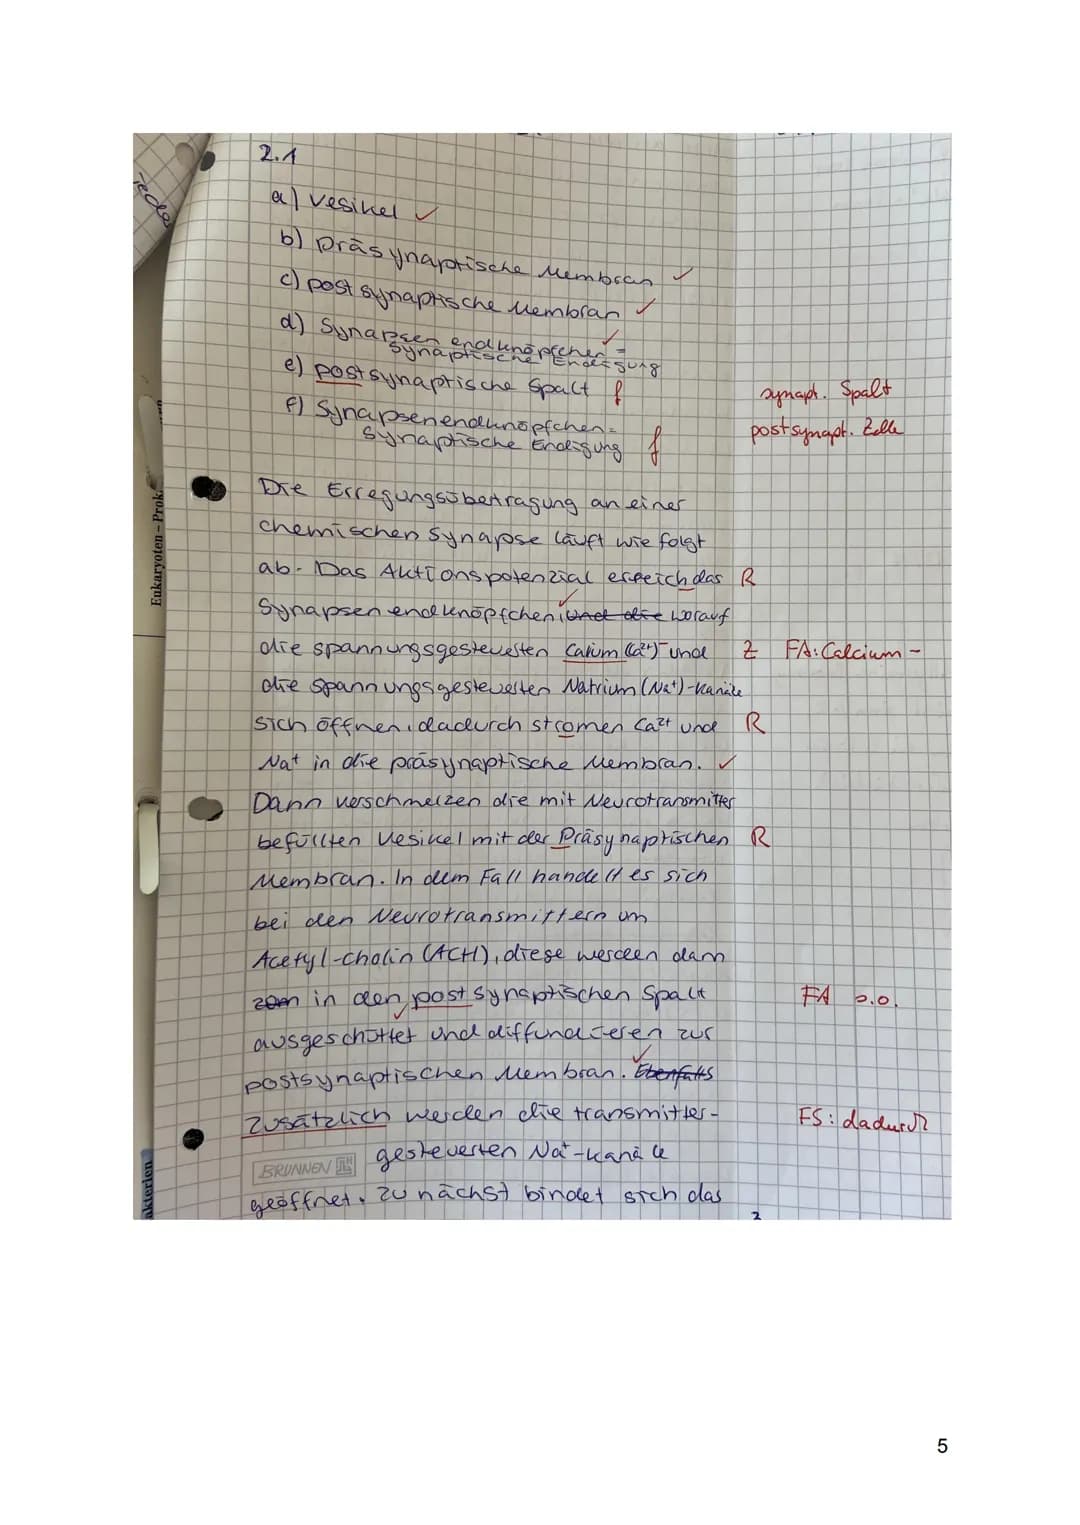 2.1
a) Vesikel ✓
b) präsynaptische Membran ✓
c) postsynaptische Membran ✓
d) Synapsenendknöpfchen = ✓
Synaptische Endigung
e) postsynaptische Spalt f synapt. Spalt
f) Synapsenendknöpfchen = postsynapt. Zelle
Synaptische Endigung f
Die Erregungsübertragung an einer
chemischen Synapse läuft wie folgt
ab. Das Aktionspotenzial erreich das R
Synapsenendknöpfchen, und die worauf
die spannungsgesteuerten Calium (Ca²⁺)- und Z FA: Calcium-
die spannungsgesteuerten Natrium (Na⁺)-Kanäle
sich öffnen, dadurch stromen Ca²⁺ und R
Na⁺ in die präsynaptische Membran. ✓
Dann verschmelzen die mit Neurotransmitter
befüllten Vesikel mit der Präsynaptischen R
Membran. In dem Fall handelt es sich
bei den Neurotransmittern um
Acetyl-cholin (ACH), diese werden dann
in den postsynaptischen Spalt FA s.o.
ausgeschüttet und diffundieren zur
postsynaptischen Membran. Ebenfalls
Zusätzlich werden die transmitter- FS: dadurch
BRUNNEN gesteuerten Na⁺-Kanäle
geöffnet. Zunächst bindet sich das
Eukaryoten – Prok
akterien
5